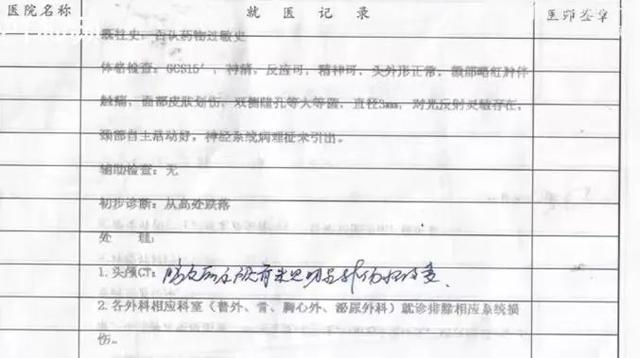 医院名称 就医记录 医师签章
既往史：否认药物过敏史
体格检查：GCS15'，神清，反应可，精神可，头外形正常，额部略红肿伴
触痛，面部皮肤划伤，双侧瞳孔等大等圆，直径3mm，对光反射灵敏存在，
颈部自主活动好，神经系统病理征未引出。
辅助检查：无
初步诊断：从高处跌落
处 理：
1.头颅CT：
2.各外科相应科室（普外、骨、胸心外、泌尿外科）就诊排除相应系统损
伤。